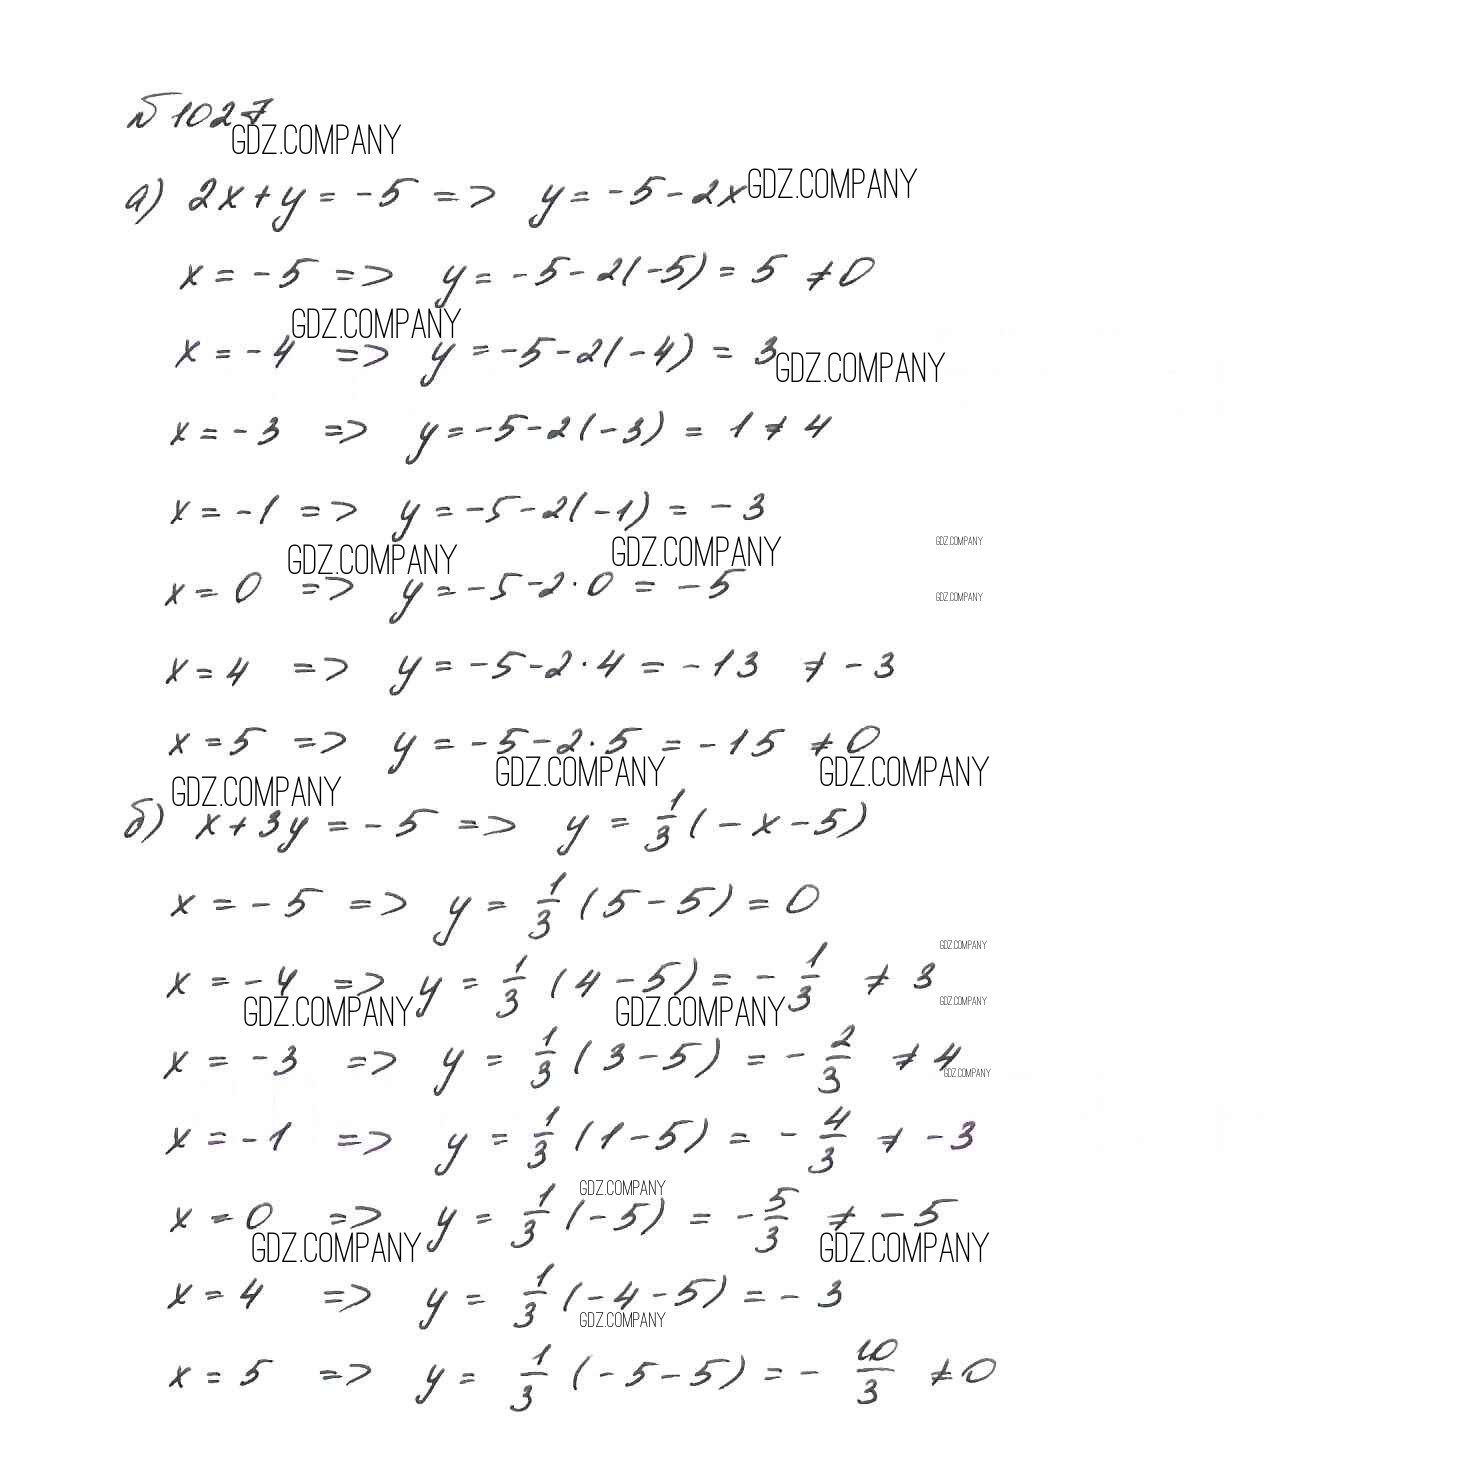 №1027
GDZ.COMPANY
а) 2x + y = -5 => y = -5 - 2x GDZ.COMPANY
x = -5 => y = -5 - 2(-5) = 5 ≠ 0
GDZ.COMPANY
x = -4 => y = -5 - 2(-4) = 3 GDZ.COMPANY
x = -3 => y = -5 - 2(-3) = 1 ≠ 4
x = -1 => y = -5 - 2(-1) = -3
GDZ.COMPANY GDZ.COMPANY GDZ.COMPANY
x = 0 => y = -5 - 2·0 = -5 GDZ.COMPANY
x = 4 => y = -5 - 2·4 = -13 ≠ -3
x = 5 => y = -5 - 2·5 = -15 ≠ 0
GDZ.COMPANY GDZ.COMPANY GDZ.COMPANY
б) x + 3y = -5 => y = 1/3 (-x - 5)
x = -5 => y = 1/3 (5 - 5) = 0
GDZ.COMPANY
x = -4 => y = 1/3 (4 - 5) = -1/3 ≠ 3
GDZ.COMPANY GDZ.COMPANY GDZ.COMPANY
x = -3 => y = 1/3 (3 - 5) = -2/3 ≠ 4
GDZ.COMPANY
x = -1 => y = 1/3 (1 - 5) = -4/3 ≠ -3
GDZ.COMPANY
x = 0 => y = 1/3 (-5) = -5/3 ≠ -5
GDZ.COMPANY GDZ.COMPANY
x = 4 => y = 1/3 (-4 - 5) = -3
GDZ.COMPANY
x = 5 => y = 1/3 (-5 - 5) = -10/3 ≠ 0